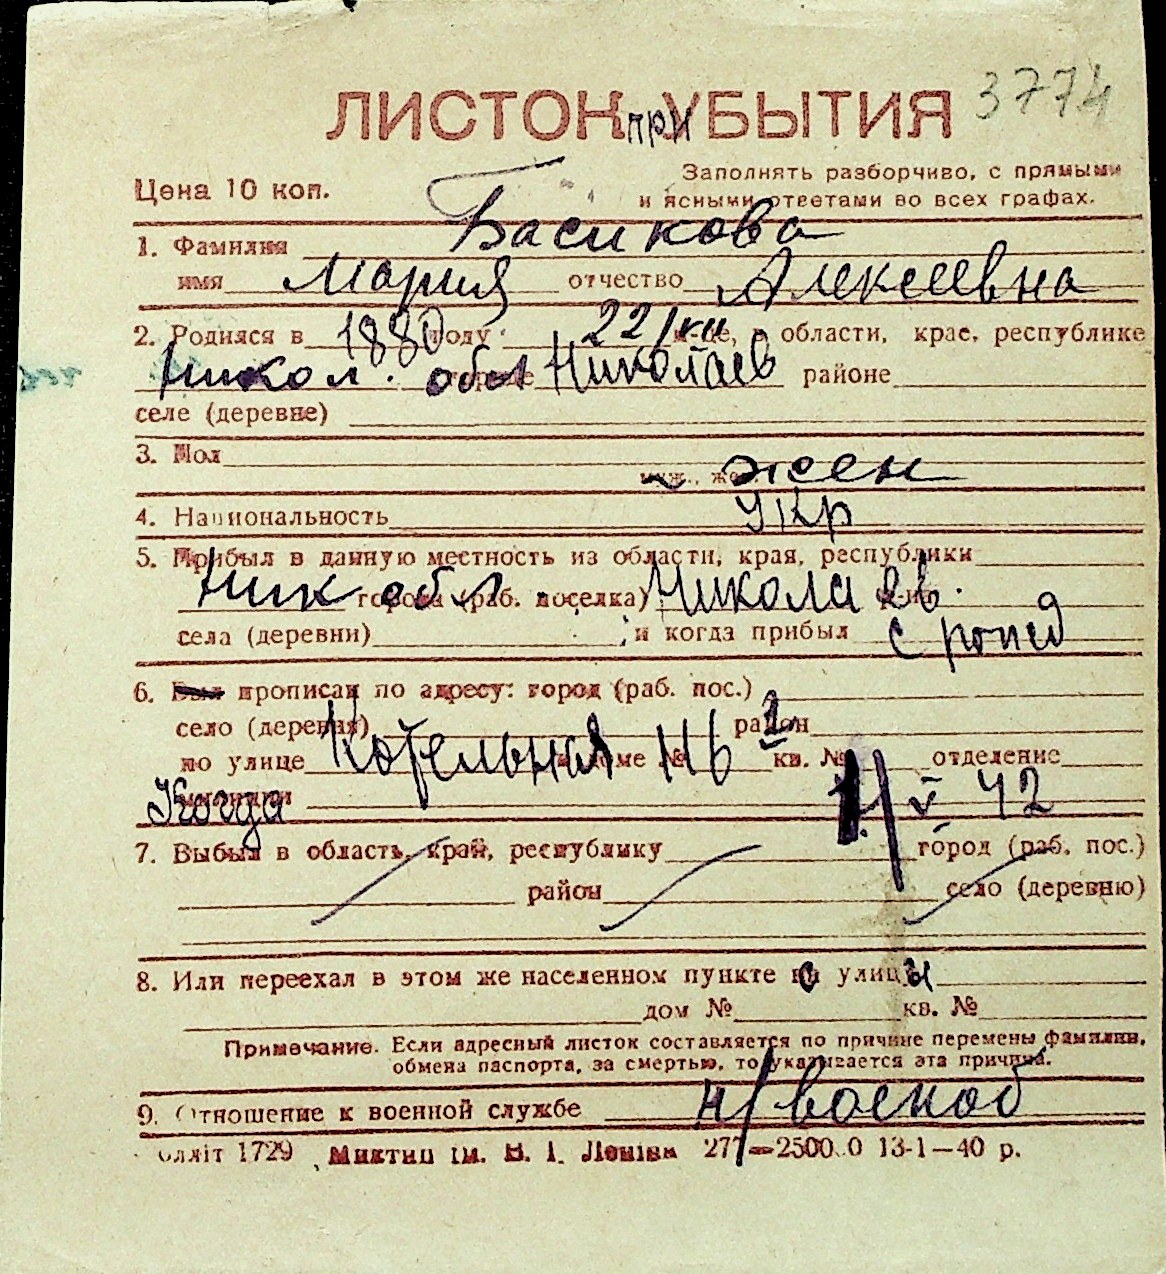 3774
ЛИСТОК при УБЫТИЯ
Цена 10 коп.
Заполнять разборчиво, с прямыми
и ясными ответами во всех графах.
1. Фамилия Басикова
имя Мария отчество Алексеевна
2. Родился в 1880 году 22/ м-це, в области, крае, республике
Никол. обл городе Николаев районе
селе (деревне)
3. Пол муж., жен. жен
4. Национальность укр
5. Прибыл в данную местность из области, края, республики
Ник обл. города (раб. поселка) Николаев.
села (деревни) ; и когда прибыл с рожд
6. Был прописан по адресу: город (раб. пос.)
село (деревня) район
по улице Котельная доме № 1 кв. № отделение
милиции Когда 14/V 42
7. Выбыл в область, край, республику город (раб. пос.)
район село (деревню)
8. Или переехал в этом же населенном пункте с улицы
дом № кв. №
Примечание. Если адресный листок составляется по причине перемены фамилии,
обмена паспорта, за смертью, то указывается эта причина.
9. Отношение к военной службе н/военоб
лліт 1729 Миктип ім. В. І. Леніна 277—25000 13-1—40 р.